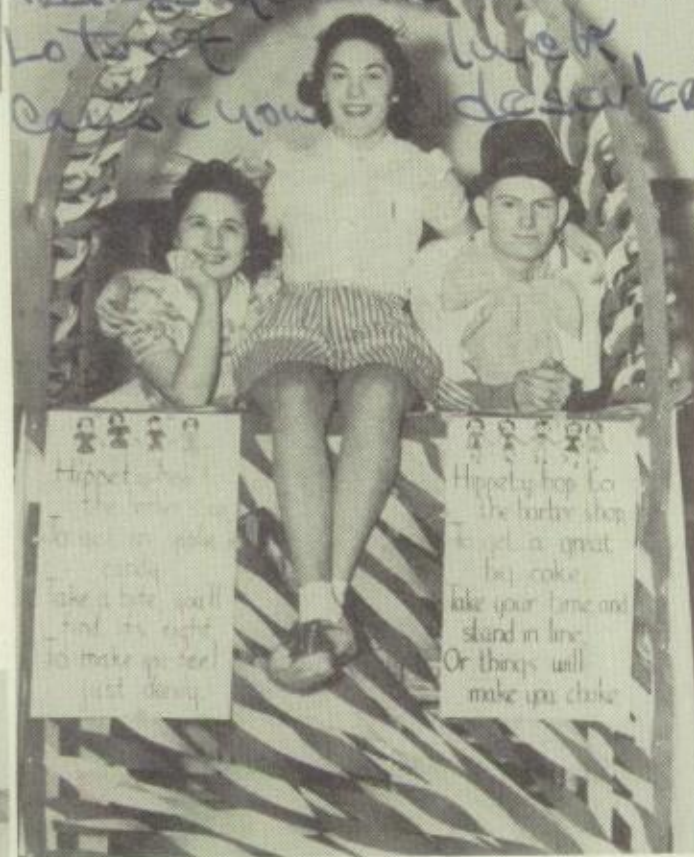 Lots of luck
cause you deserve
Hippety hop
the barber
To get an apple
candy.
Take a bite, you'll
find it's right
To make you feel
just dandy.
Hippety hop to
the barber shop,
To get a great
big coke.
Take your time and
stand in line
Or things will
make you choke